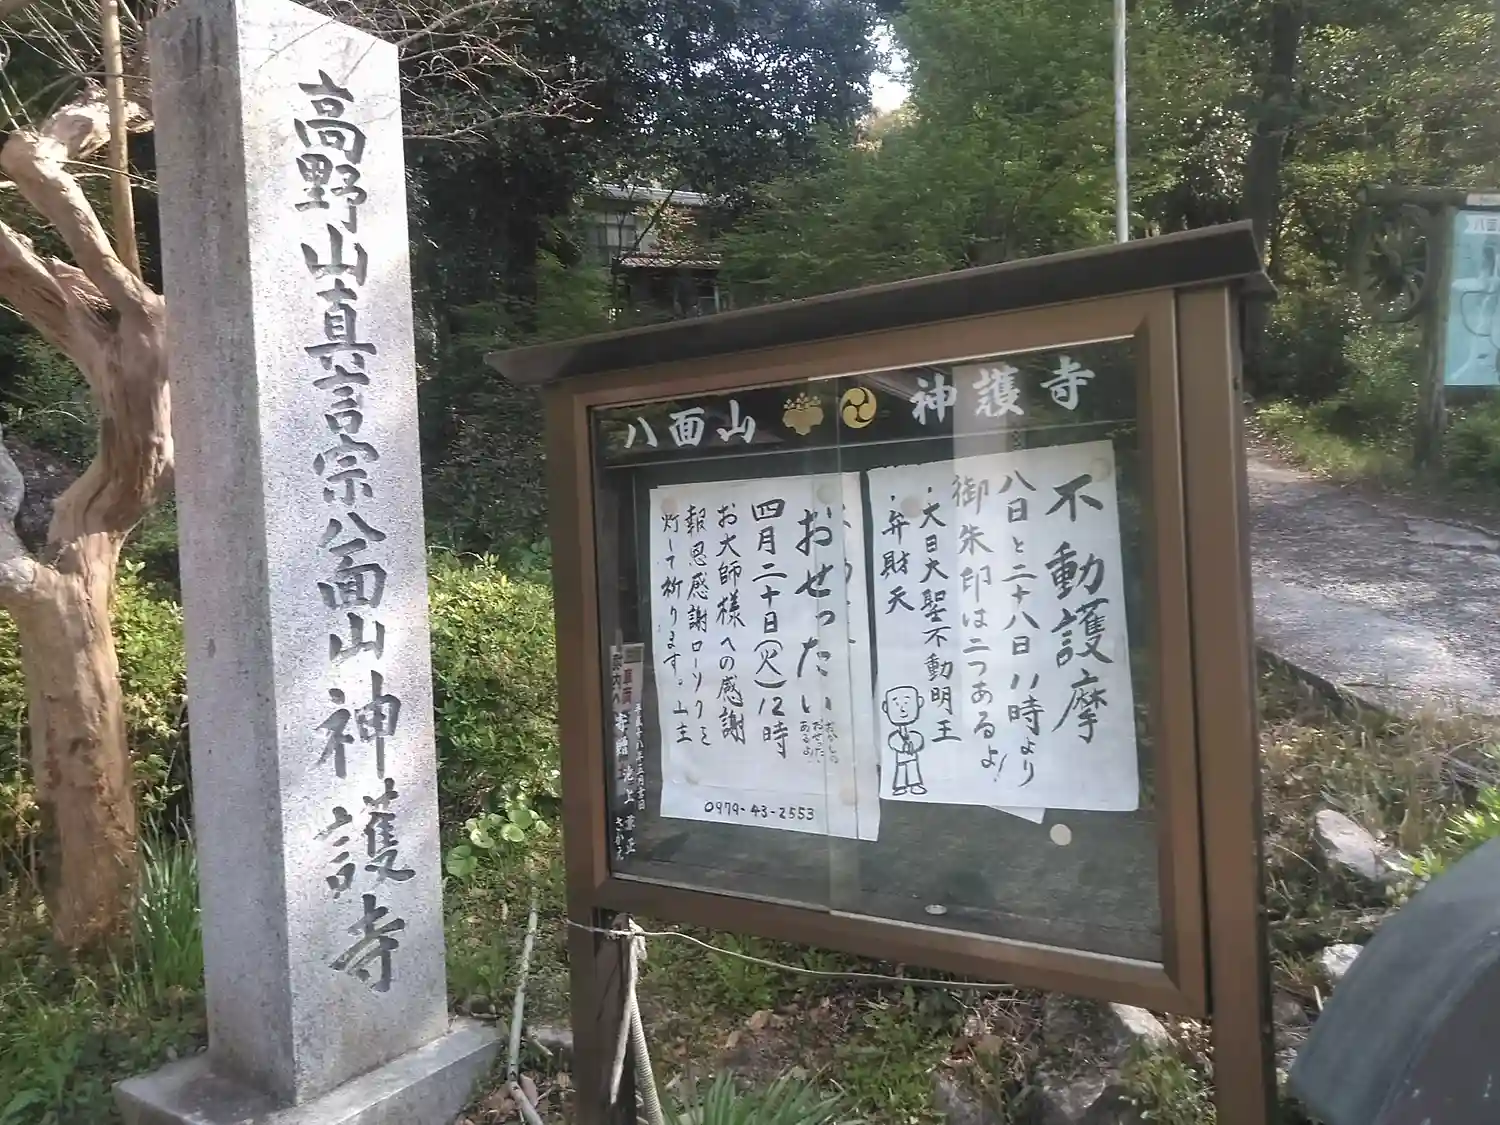 高野山真言宗八面山神護寺
八面山 神護寺
不動護摩
八日と二十八日11時より
御朱印は二つあるよ!
・大日大聖不動明王
・弁財天
おせったい
おかしの
おせったい
あるよ!
四月二十日(火)12時
お大師様への感謝
報恩感謝ローソクを
灯して祈ります。山主
0979-43-2553
八面